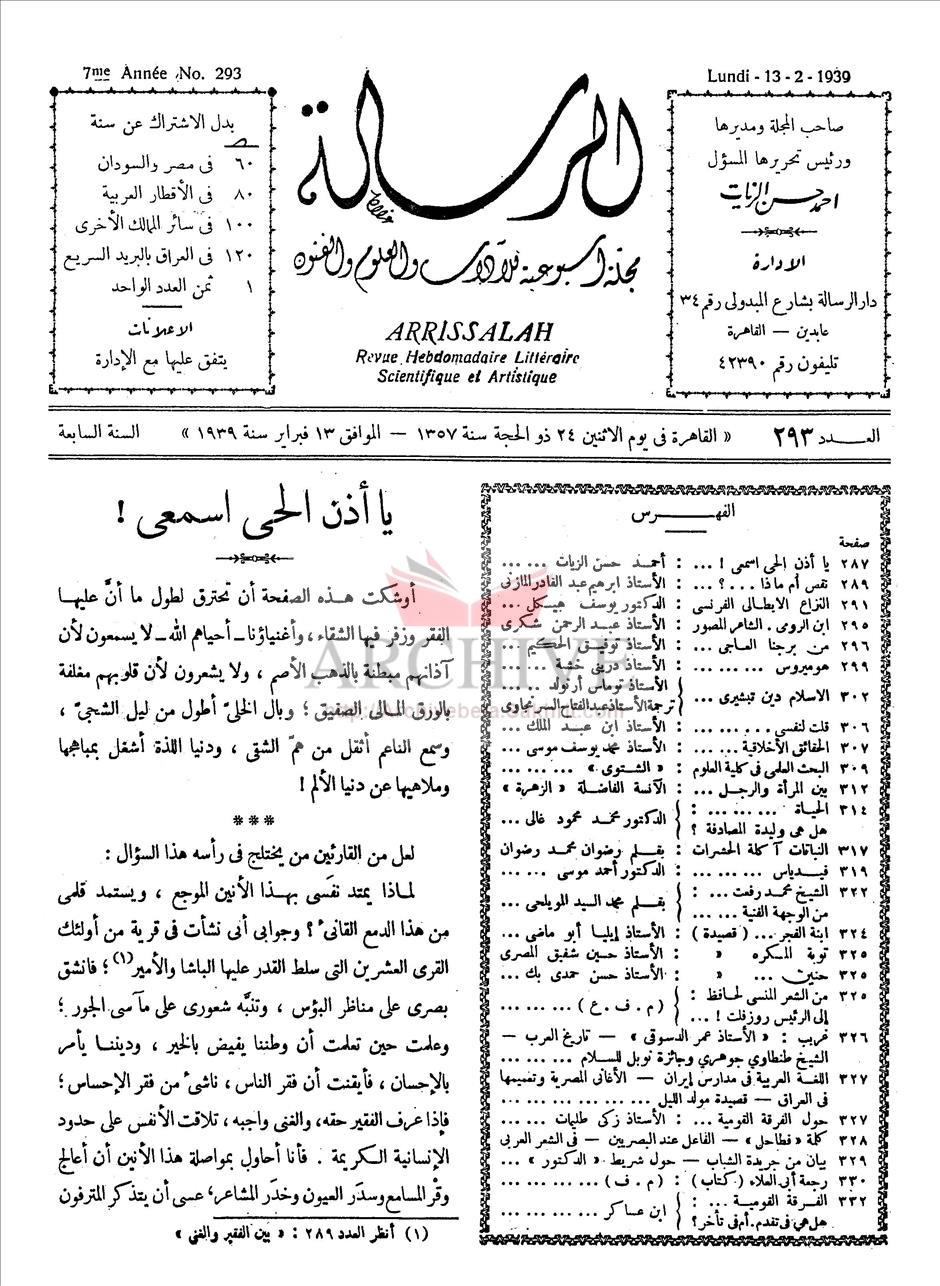 7me Année No. 293
Lundi - 13 - 2 - 1939
صاحب المجلة ومديرها
ورئيس تحريرها المسؤل
احمد حسن الزيات
الادارة
دار الرسالة بشارع المبدولى رقم ٣٤
عابدين — القاهرة
تليفون رقم ٤٢٣٩٠
الرسالة
مجلة اسبوعية للآداب والعلوم والفنون
ARRISSALAH
Revue Hebdomadaire Littéraire
Scientifique et Artistique
بدل الاشتراك عن سنة
٦٠ فى مصر والسودان
٨٠ فى الأقطار العربية
١٠٠ فى سائر الممالك الأخرى
١٢٠ فى العراق بالبريد السريع
١ ثمن العدد الواحد
الاعلانات
يتفق عليها مع الإدارة
العـــدد ٢٩٣ « القاهرة فى يوم الاثنين ٢٤ ذو الحجة سنة ١٣٥٧ — الموافق ١٣ فبراير سنة ١٩٣٩ » السنة السابعة
الفهـــرس
صفحة
٢٨٧ يا أذن الحى اسمعى ! ... : أحمد حسن الزيات ... ...
٢٨٩ نفس أم ماذا ... ؟ ... : الأستاذ ابرهيم عبد القادر المازنى
٢٩١ النزاع الايطالى الفرنسى : الدكتور يوسف هيكل ...
٢٩٥ ابن الرومى . الشاعر المصور : الأستاذ عبد الرحمن شكرى
٢٩٦ من برجنا العاجى ... : الأستاذ توفيق الحكيم ...
٢٩٩ هوميروس ... ... ... : الأستاذ درينى خشبة ... ...
٣٠٢ الاسلام دين تبشيرى ... { الأستاذ توماس أرنولد ... ...
ترجمة الأستاذ عبد الفتاح السرنجاوى
٣٠٦ قلت لنفسى ... ... ... : الأستاذ ابن عبد الملك ...
٣٠٧ الحقائق الأخلاقية ... ... : الأستاذ محمد يوسف موسى ...
٣٠٩ البحث العلمى فى كلية العلوم : « الشتوى » ... ... ...
٣١٢ بين المرأة والرجل ... : الآنسة الفاضلة « الزهرة »
٣١٤ الحياة ... ... ... :
هل هى وليدة المصادفة ؟ } الدكتور محمد محمود غالى ...
٣١٧ النباتات آكلة الحشرات : بقلم رضوان محمد رضوان
٣١٩ فيدياس ... ... ... : الدكتور أحمد موسى ... ...
٣٢٢ الشيخ محمد رفعت ... :
من الوجهة الفنية ... ... } بقلم محمد السيد المويلحى ...
٣٢٤ ابنة الفجر ... ( قصيدة ) : الأستاذ إيليا أبو ماضى ...
٣٢٥ توبة المكره « : الأستاذ حسين شفيق المصرى
٣٢٥ حنين ... « : الأستاذ حسن حمدى بك ...
٣٢٥ من الشعر المنسى لحافظ :
إلى الرئيس روزفلت ! ... } ( م . ف . ع ) ... ... ...
٣٢٦ غريب : « الأستاذ عمر الدسوقى » — تاريخ العرب —
الشيخ طنطاوى جوهرى وجائزة نوبل للسلام ... ... ...
٣٢٧ اللغة العربية فى مدارس إيران — الأغانى المصرية وتقييمها
فى العراق — قصيدة مولد الليل ... ... ... ...
٣٢٧ حول الفرقة القومية ... : الأستاذ زكى طليمات ... ...
٣٢٨ كلمة « فطاحل » — الفاعل عند البصريين — فى الشعر العربى
٣٢٩ بيان من جريدة الشباب — حول شريط « الدكتور » ...
٣٣٠ رجعة أبى العلاء ( كتاب ) : ( م . ف ) ... ... ...
٣٣٢ الفرقة القومية ... :
هل هى فى تقدم. أم فى تأخر ؟ } ابن عساكر ... ... ...
يا أذن الحى اسمعى !
أوشكت هـذه الصفحة أن تحترق لطول ما أنَّ عليها
الفقر وزفر فيها الشقاء ، وأغنياؤنا ـ أحياهم الله ـ لا يسمعون لأن
آذانهم مبطنة بالذهب الأصم ، ولا يشعرون لأن قلوبهم مغلفة
بالورق المالى الصفيق ؛ وبال الخلىّ أطول من ليل الشجىّ ،
وسمع الناعم أثقل من همّ الشقى ، ودنيا اللذة أشغل بمباهجها
وملاهيها عن دنيا الألم !
***
لعل من القارئين من يختلج فى رأسه هذا السؤال :
لماذا يمتد نفَسى بهـذا الأنين الموجع ، ويستمد قلمى
من هذا الدمع القانىء ؟ وجوابى أنى نشأت فى قرية من أولئك
القرى العشرين التى سلط القدر عليها الباشا والأمير(١) ؛ فانشق
بصرى على مناظر البؤس ، وتنبَّه شعورى على مآسى الجور ؛
وعلمت حين تعلمت أن وطننا يفيض بالخير ، وديننا يأمر
بالإحسان ، فأيقنت أن فقر الناس ، ناشئ من فقر الإحساس ؛
فإذا عرف الفقير حقه، والغنى واجبه ، تلاقت الأنفس على حدود
الإنسانية الكريمة . فأنا أحاول بمواصلة هذا الأنين أن أعالج
وقْر المسامع وسدَر العيون وخدَر المشاعر ، عسى أن يتذكر المترفون
(١) أنظر العدد ٢٨٩ : « بين الفقير والغنى »
ARCHIVE